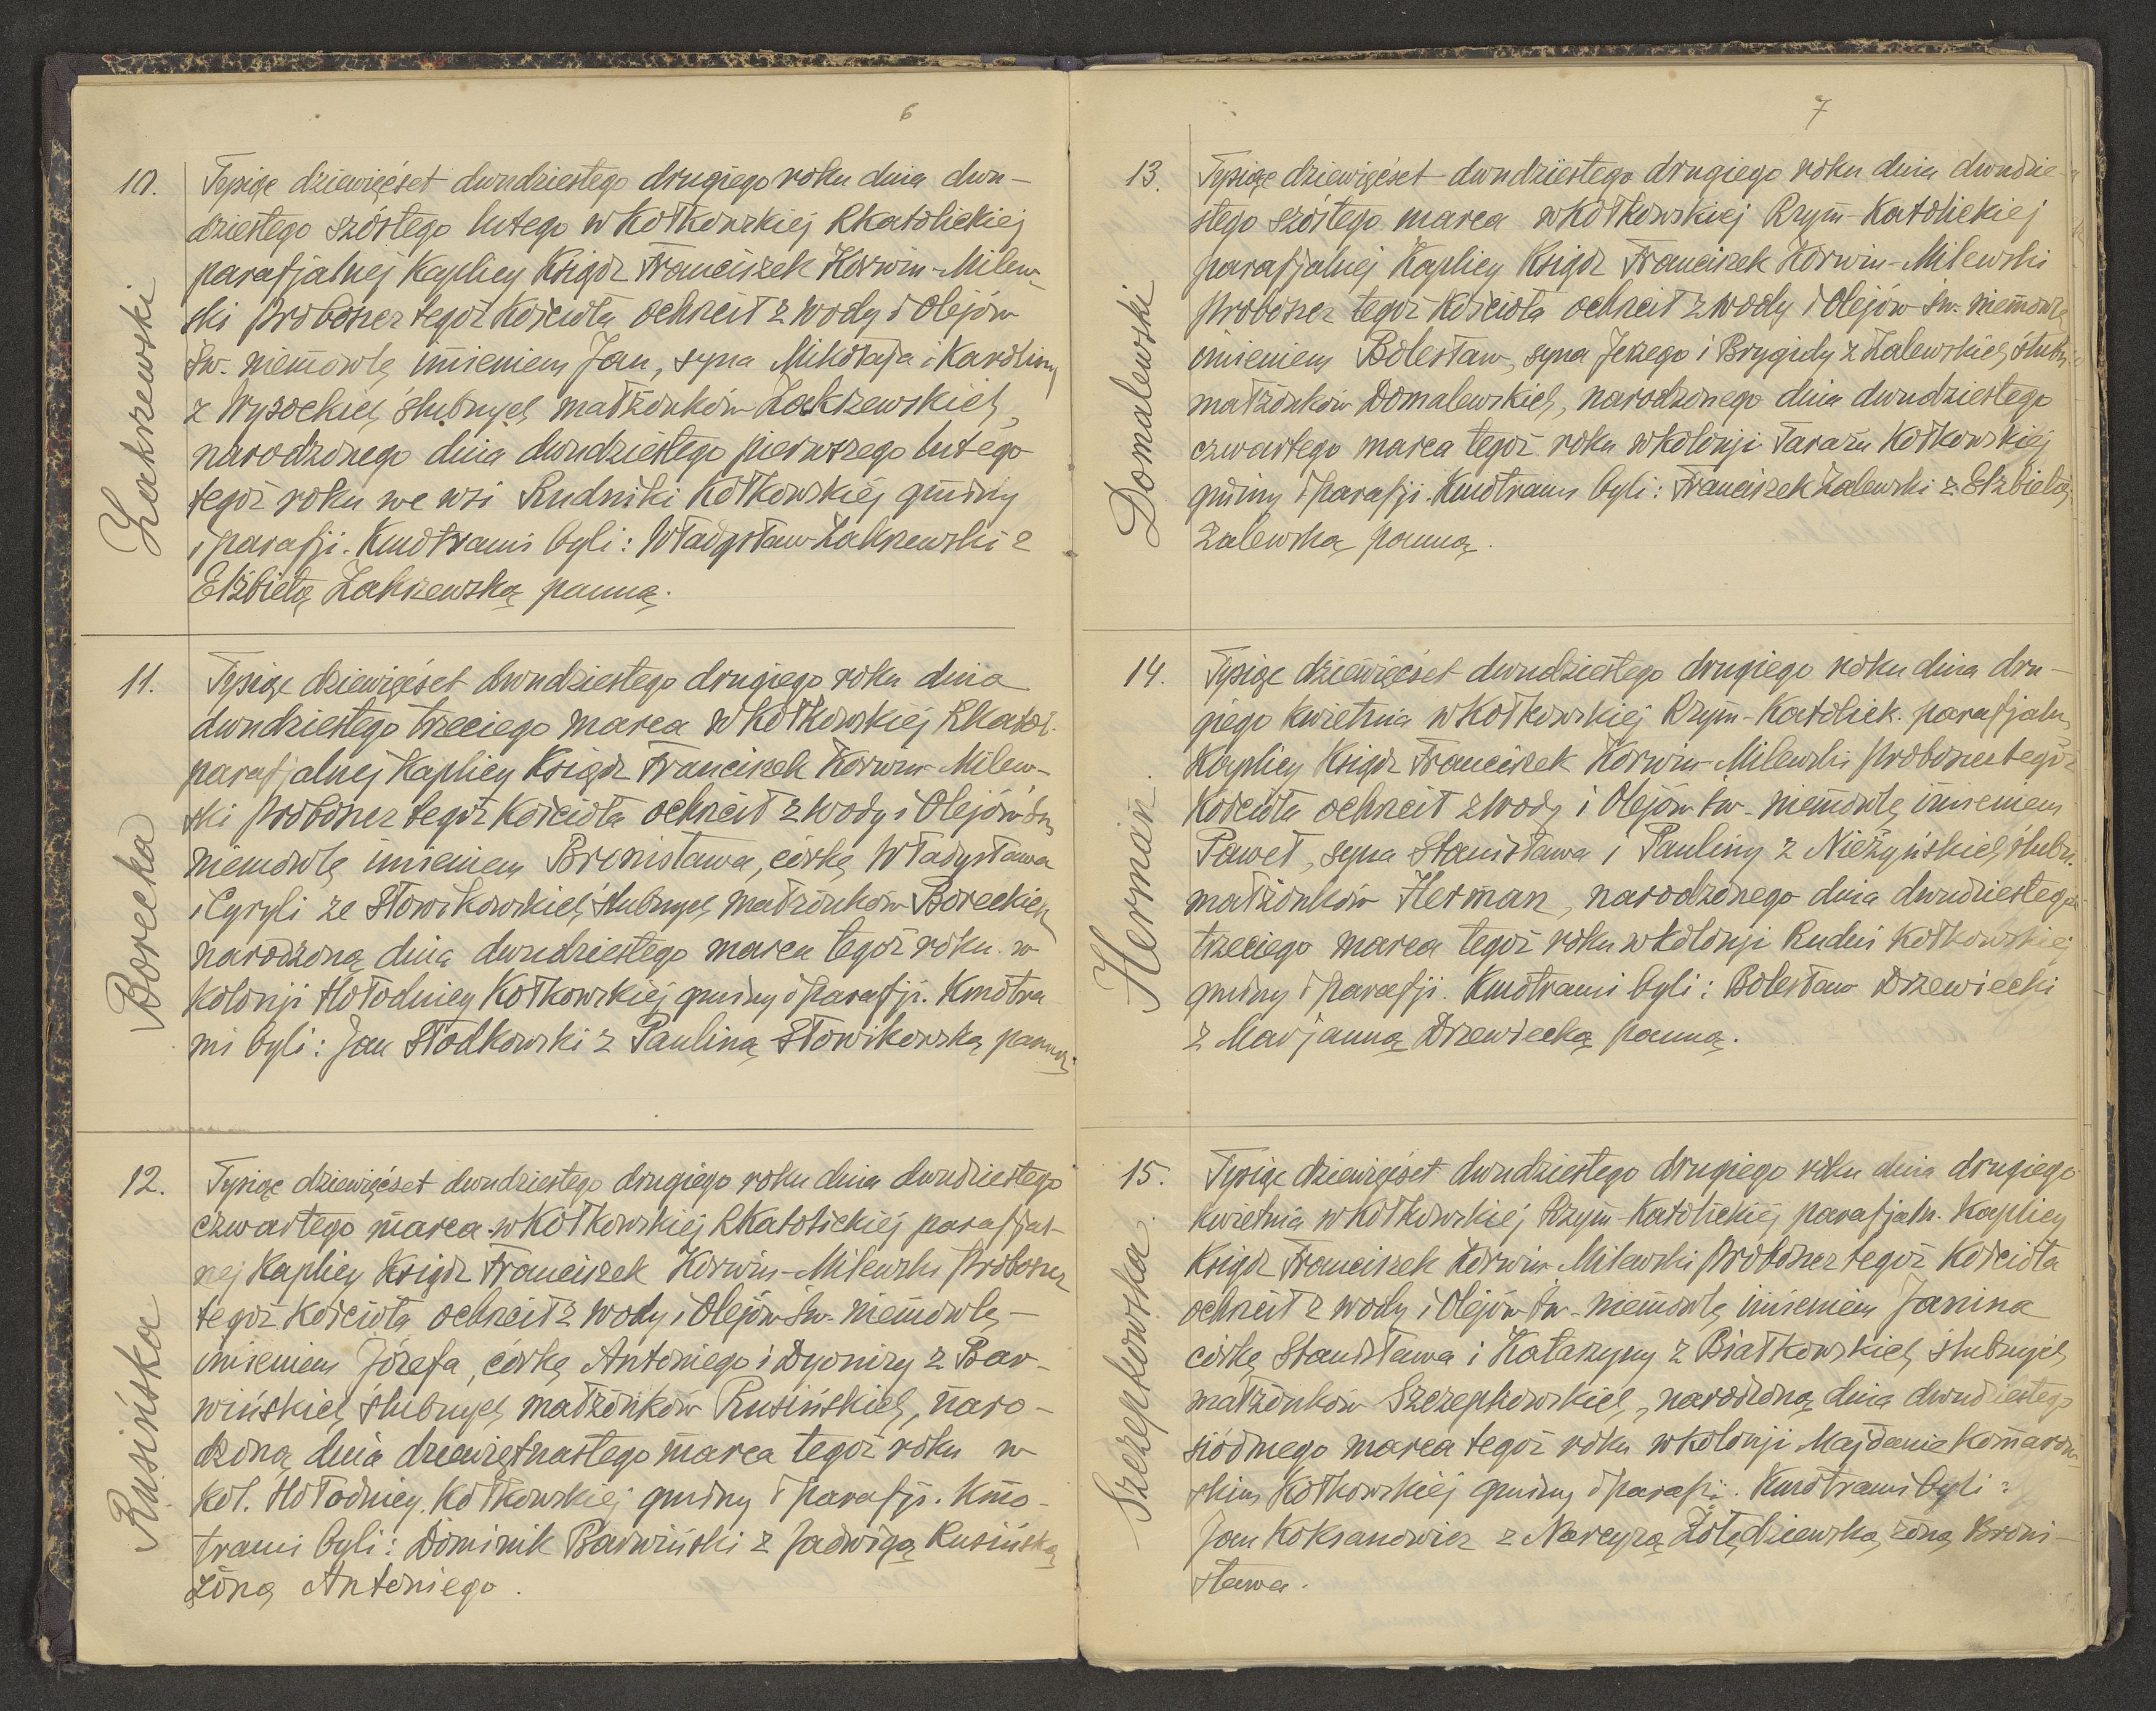 6
10.
Zakrzewski
Tysiąc dziewięćset dwudziestego drugiego roku dnia dwu-
dziestego szóstego lutego w Kołkowskiej RKatolickiej
parafjalnej Kaplicy Ksiądz Franciszek Korwin-Milew-
ski proboszcz tegoż Kościoła ochrcił z wody i Olejów
św. niemowlę imieniem Jan, syna Mikołaja i Karoliny
z Wysockich, ślubnych małżonków Zakrzewskich,
narodzonego dnia dwudziestego pierwszego lutego
tegoż roku we wsi Rudniki Kołkowskiej gminy
i parafji. Kmotrami byli: Władysław Zakrzewski z
Elżbietą Zakrzewską panną.
11.
Borecka
Tysiąc dziewięćset dwudziestego drugiego roku dnia
dwudziestego trzeciego marca w Kołkowskiej RKatol.
parafjalnej Kaplicy Ksiądz Franciszek Korwin-Milew-
ski proboszcz tegoż Kościoła ochrcił z wody i Olejów św.
niemowlę imieniem Bronisława, córkę Władysława
i Cyryli ze Słowikowskich, ślubnych małżonków Boreckich
narodzoną dnia dwudziestego marca tegoż roku w
kolonji Hołodnicy Kołkowskiej gminy i parafji. Kmotra
mi byli: Jan Słodkowski z Pauliną Słowikowską panną.
12.
Rusińska
Tysiąc dziewięćset dwudziestego drugiego roku dnia dwudziestego
czwartego marca w Kołkowskiej RKatolickiej parafjal-
nej Kaplicy Ksiądz Franciszek Korwin-Milewski proboszcz
tegoż Kościoła ochrcił z wody i Olejów św. niemowlę-
imieniem Józefa, córkę Antoniego i Dyonizy z Bar-
wińskich, ślubnych małżonków Rusińskich, naro-
dzoną dnia dziewiętnastego marca tegoż roku w
kol. Hołodnicy Kołkowskiej gminy i parafji. Kmo-
trami byli: Dominik Barwiński z Jadwigą Rusińską
żoną Antoniego.
7
13.
Domalewski
Tysiąc dziewięćset dwudziestego drugiego roku dnia dwudzie-
stego szóstego marca w Kołkowskiej Rzym-Katolickiej
parafjalnej Kaplicy Ksiądz Franciszek Korwin-Milewski
proboszcz tegoż Kościoła ochrcił z wody i Olejów św. niemowlę
imieniem Bolesław, syna Jerzego i Brygidy z Zalewskich, ślubn.
małżonków Domalewskich, narodzonego dnia dwudziestego
czwartego marca tegoż roku w kolonji Tarażu Kołkowskiej
gminy i parafji. Kmotrami byli: Franciszek Zalewski z Elżbietą
Zalewską panną.
14.
Herman
Tysiąc dziewięćset dwudziestego drugiego roku dnia dru-
giego kwietnia w Kołkowskiej Rzym-Katolick. parafjaln.
Kaplicy Ksiądz Franciszek Korwin-Milewski proboszcz tegoż
Kościoła ochrcił z wody i Olejów św. niemowlę imieniem
Paweł, syna Stanisława i Pauliny z Nieżyńskich, ślubn.
małżonków Herman, narodzonego dnia dwudziestego
trzeciego marca tegoż roku w kolonji Rudni Kołkowskiej
gminy i parafji. Kmotrami byli: Bolesław Drzewiecki
z Marjanną Drzewiecką panną.
15.
Szczepkowska
Tysiąc dziewięćset dwudziestego drugiego roku dnia drugiego
kwietnia w Kołkowskiej Rzym-Katolickiej parafjaln. Kaplicy
Ksiądz Franciszek Korwin-Milewski proboszcz tegoż Kościoła
ochrcił z wody i Olejów św. niemowlę imieniem Janina
córkę Stanisława i Katarzyny z Białkowskich, ślubnych
małżonków Szczepkowskich, narodzoną dnia dwudziestego
siódmego marca tegoż roku w kolonji Majdanie Komarow-
skim Kołkowskiej gminy i parafji. Kmotrami byli:
Jan Koksanowicz z Narcyzą Żołędziewską, żoną Broni-
sława.